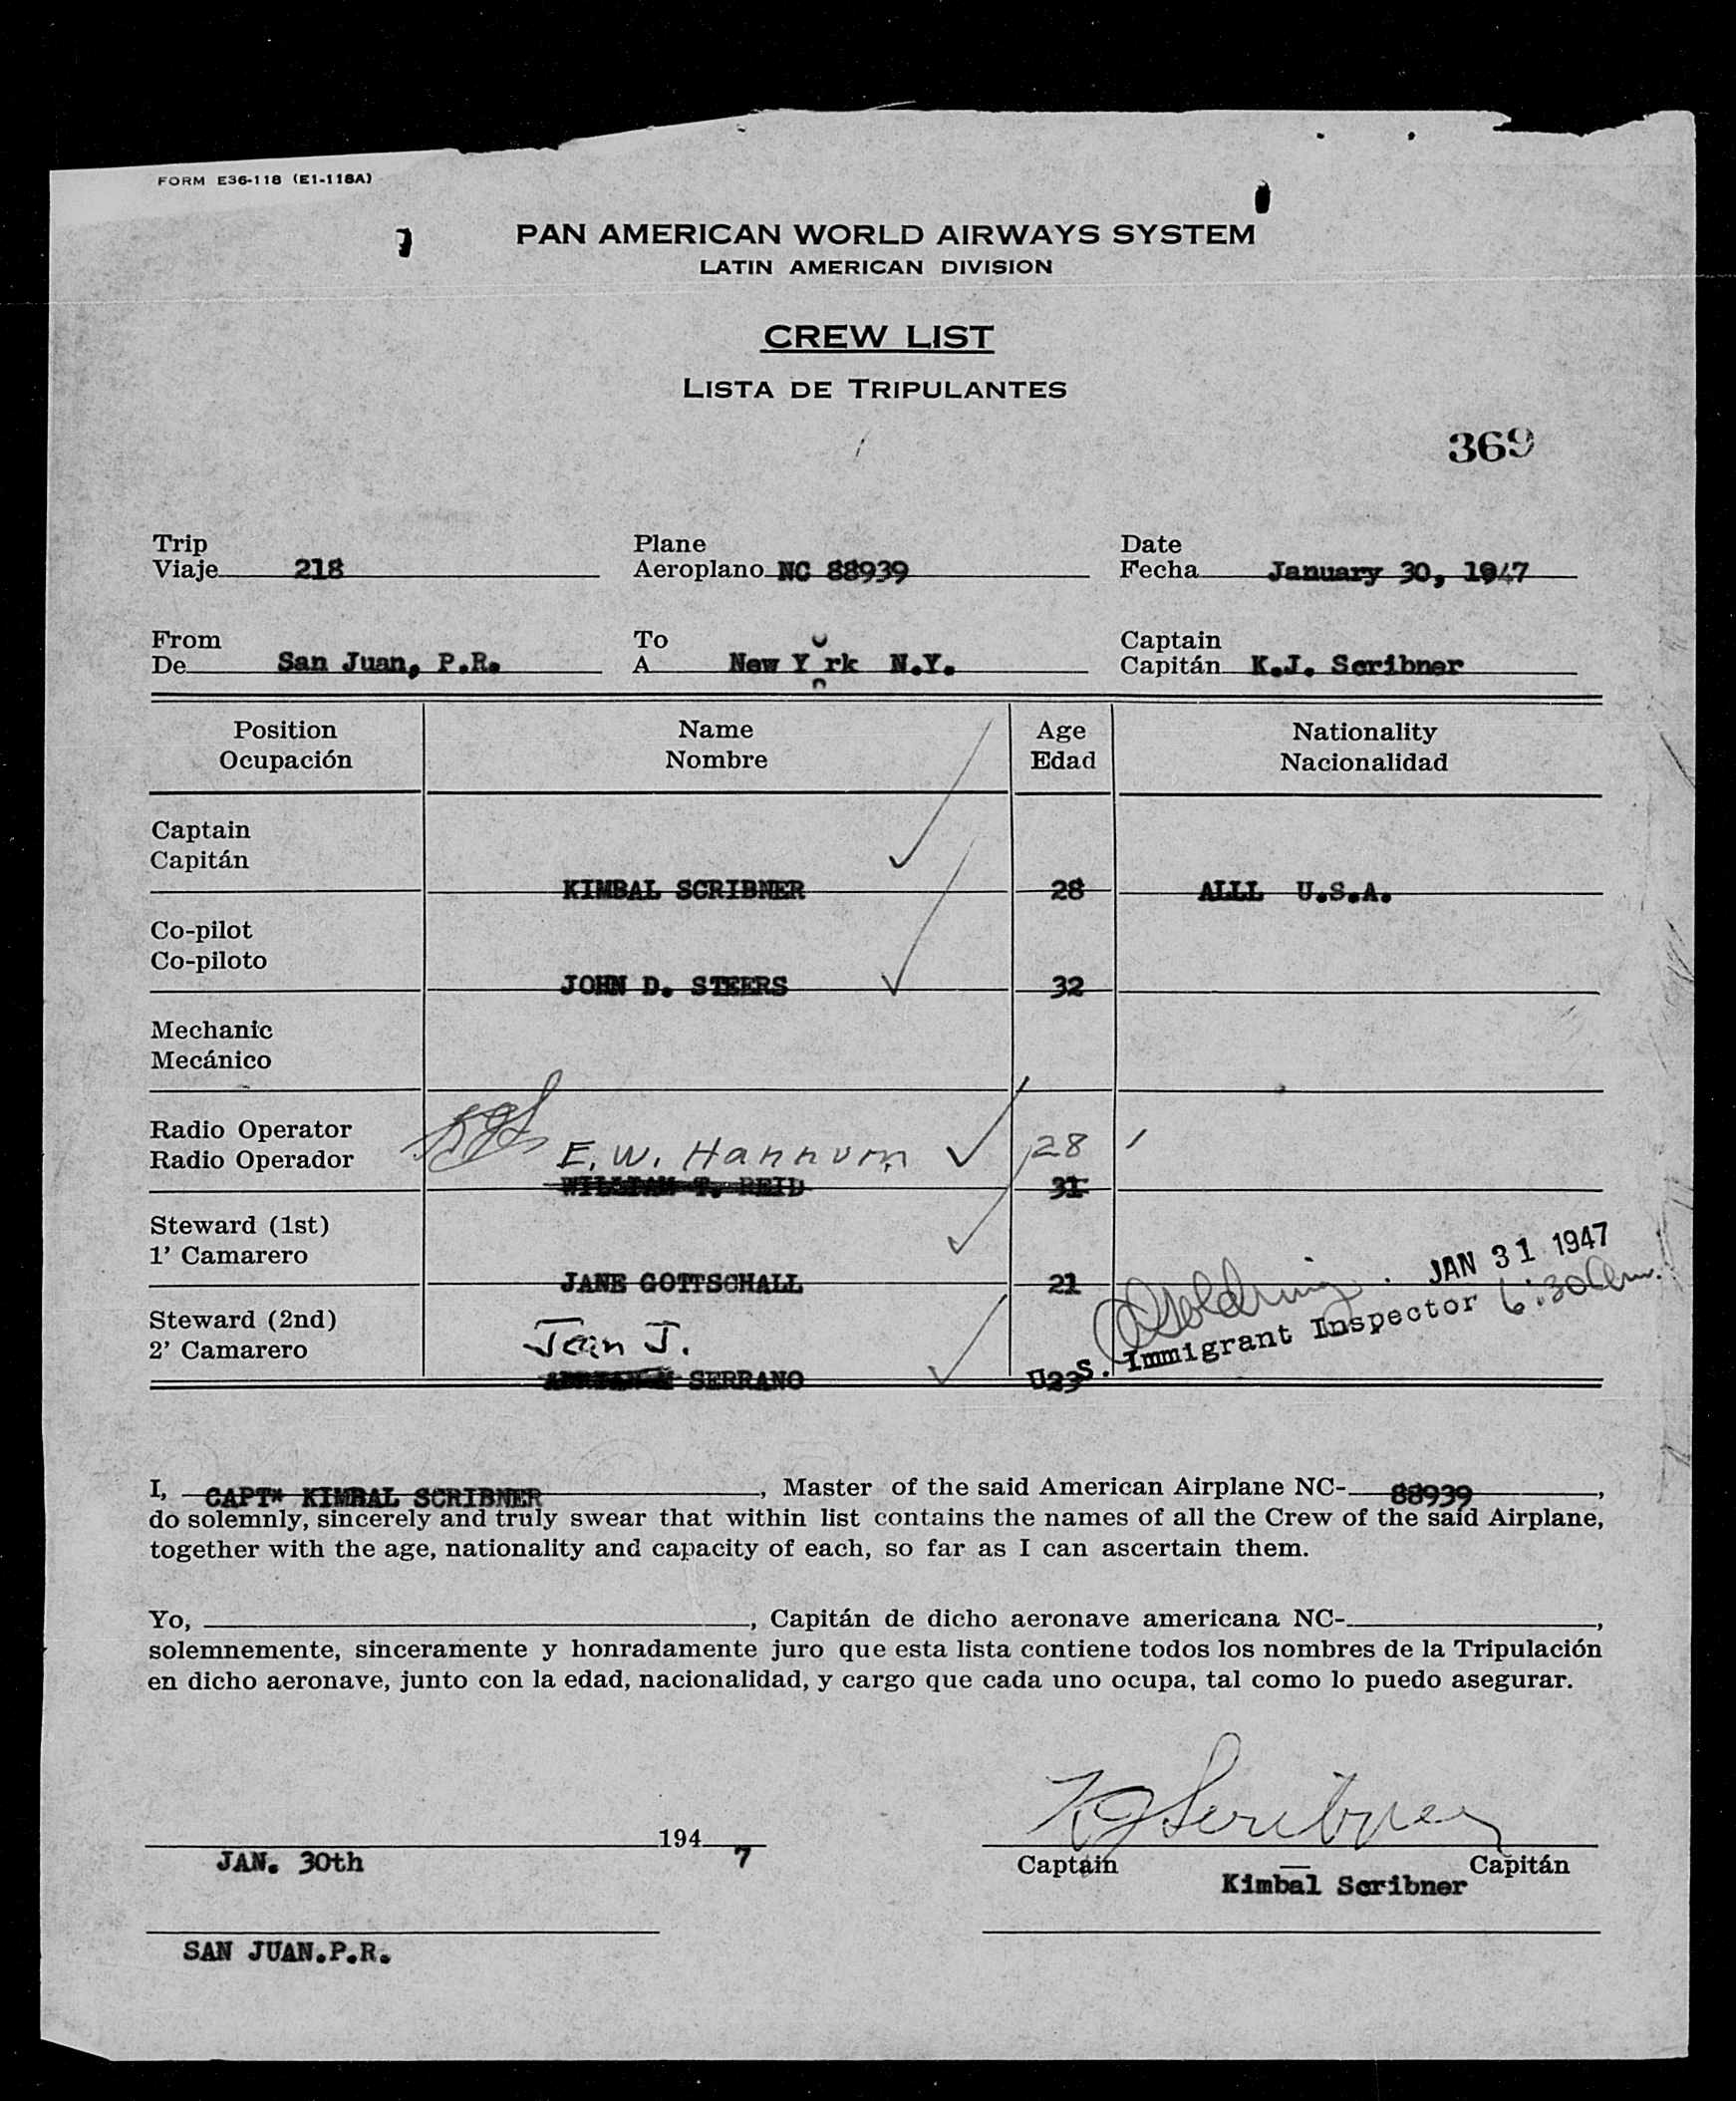 FORM E36-118 (E1-118A)
PAN AMERICAN WORLD AIRWAYS SYSTEM
LATIN AMERICAN DIVISION
CREW LIST
LISTA DE TRIPULANTES
369
Trip Plane Date
Viaje 218 Aeroplano NC 88939 Fecha January 30, 1947
From To Captain
De San Juan, P.R. A New York N.Y. Capitán K.J. Scribner
Position Name Age Nationality
Ocupación Nombre Edad Nacionalidad
Captain
Capitán
KIMBAL SCRIBNER 28 ALLL U.S.A.
Co-pilot
Co-piloto
JOHN D. STEERS 32
Mechanic
Mecánico
Radio Operator KJS
Radio Operador E. W. Hannum 28
WILLIAM T. REID 31
Steward (1st)
1' Camarero
JANE GOTTSCHALL 21
JAN 31 1947
Steward (2nd) 6:30am.
2' Camarero Jean J.
U.S. Immigrant Inspector
SERRANO 23
I, CAPT* KIMBAL SCRIBNER, Master of the said American Airplane NC- 88939,
do solemnly, sincerely and truly swear that within list contains the names of all the Crew of the said Airplane,
together with the age, nationality and capacity of each, so far as I can ascertain them.
Yo, , Capitán de dicho aeronave americana NC- ,
solemnemente, sinceramente y honradamente juro que esta lista contiene todos los nombres de la Tripulación
en dicho aeronave, junto con la edad, nacionalidad, y cargo que cada uno ocupa, tal como lo puedo asegurar.
KJ Scribner
194
JAN. 30th 7 Captain Capitán
Kimbal Scribner
SAN JUAN.P.R.